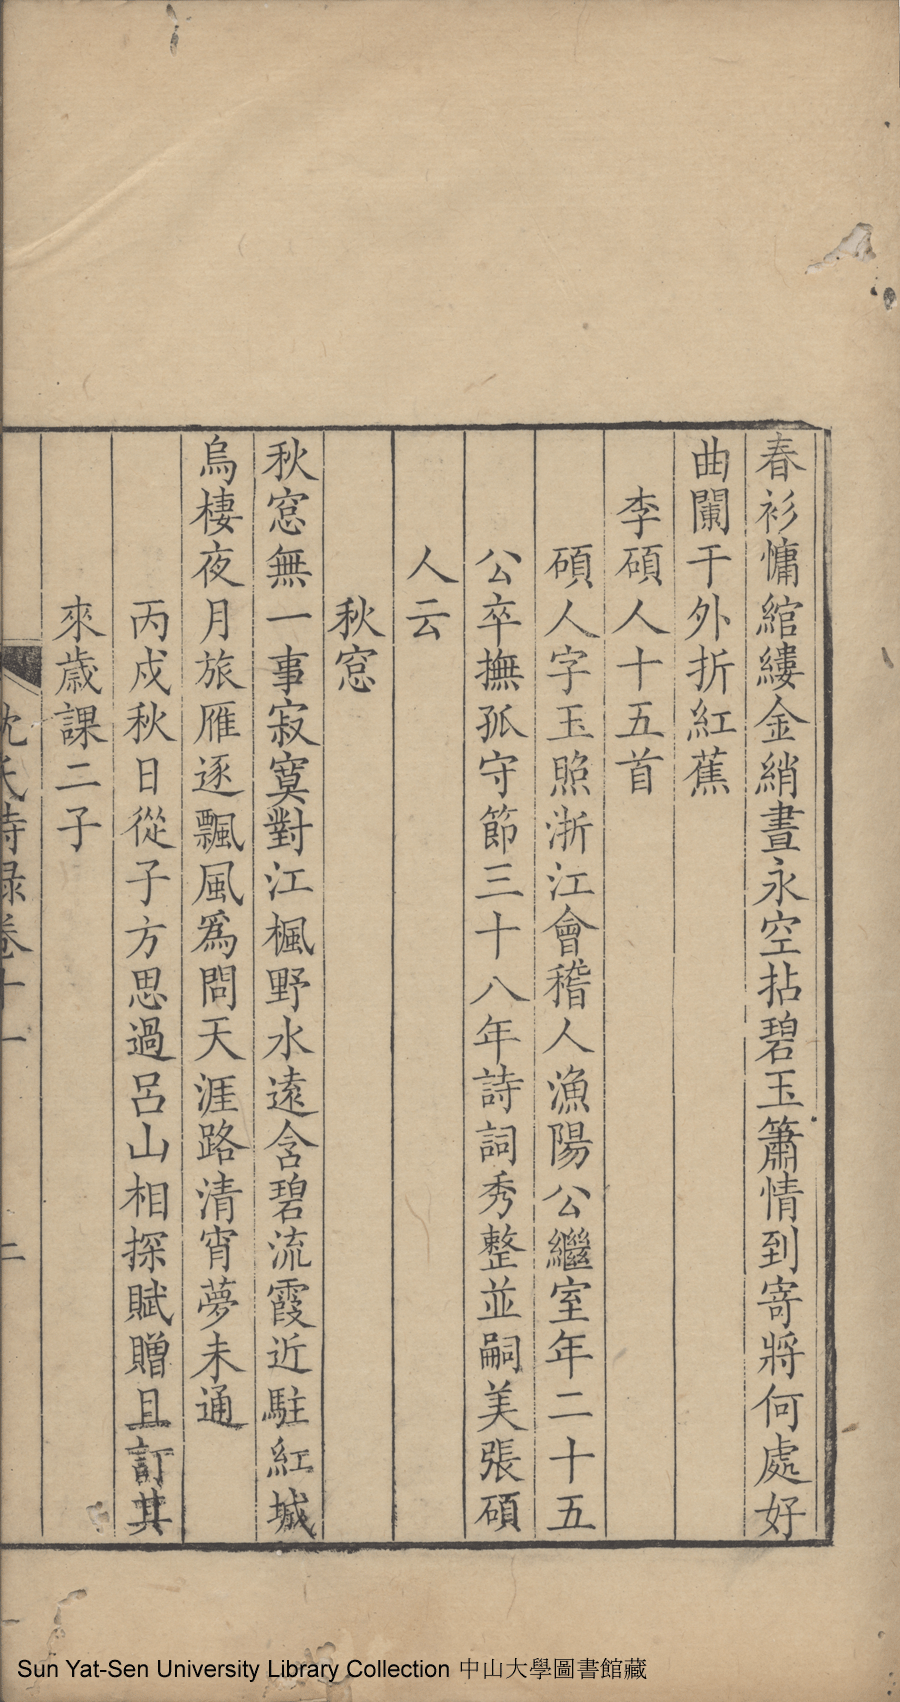 春衫慵綰縷金綃晝永空拈碧玉簫情到寄將何處好
曲闌干外折紅蕉
李碩人十五首
碩人字玉照浙江會稽人漁陽公繼室年二十五
公卒撫孤守節三十八年詩詞秀整並嗣美張碩
人云
秋窓
秋窓無一事寂寞對江楓野水遠含碧流霞近駐紅城
烏棲夜月旅雁逐飄風爲問天涯路清宵夢未通
丙戍秋日從子方思過呂山相探賦贈且訂其
來歲課二子
沈氏詩錄卷十一 二
Sun Yat-Sen University Library Collection 中山大學圖書館藏